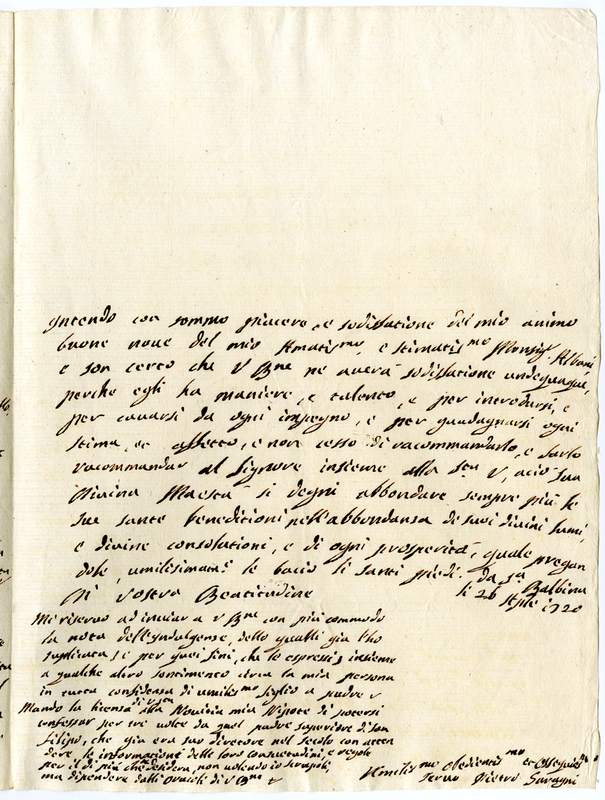 Intendo con sommo piacere, e sodisfatione del mio animo
buone nove del mio Amatis.mo, e stimatis.mo Monsig.r Albani
e son certo che V Bne ne averà sodisfatione undiquaque,
perche egli ha maniere, e talento, e per introdursi, e
per cavarsi da ogni impegno, e per guadagnarsi ogni
stima, et affetto, e non cesso di racommandarlo, e farlo
racommandar al Signore insieme alla Sta V, aciò sua
Divina Maestà si degni abbondare sempre più le
sue sante beneditioni nell'abbondansa di suoi divini lumi,
e divine consolationi, e di ogni prosperità, quale pregan
dole, umilissimamte le bacio li santi piedi. da Sta Balbina
Di Vostra Beatitudine li 26 1720
Mi riservo ad inviar a V Bne con più commodo
la nota dell'Indulgense, dello qualli gia l'ho
suplicata, e per quei fini, che le espressi insieme
a qualche altro sentimento circa la mia persona
in tutta confidensa di umiliss.mo figlio a padre
Mando la licensa di alla Novitia mia Nipote di potersi
confessar per tre volte da quel padre superiore di San
Filipo, che già era suo direttore nel secolo con atten
dere le informationi delle loro consuetudini, e regole
per il di più che desidera, non volendo io scrupoli,
ma dipendere dalli Oracoli di V Bne
Umilis.mo Obedientis.mo et
Servo Pietro